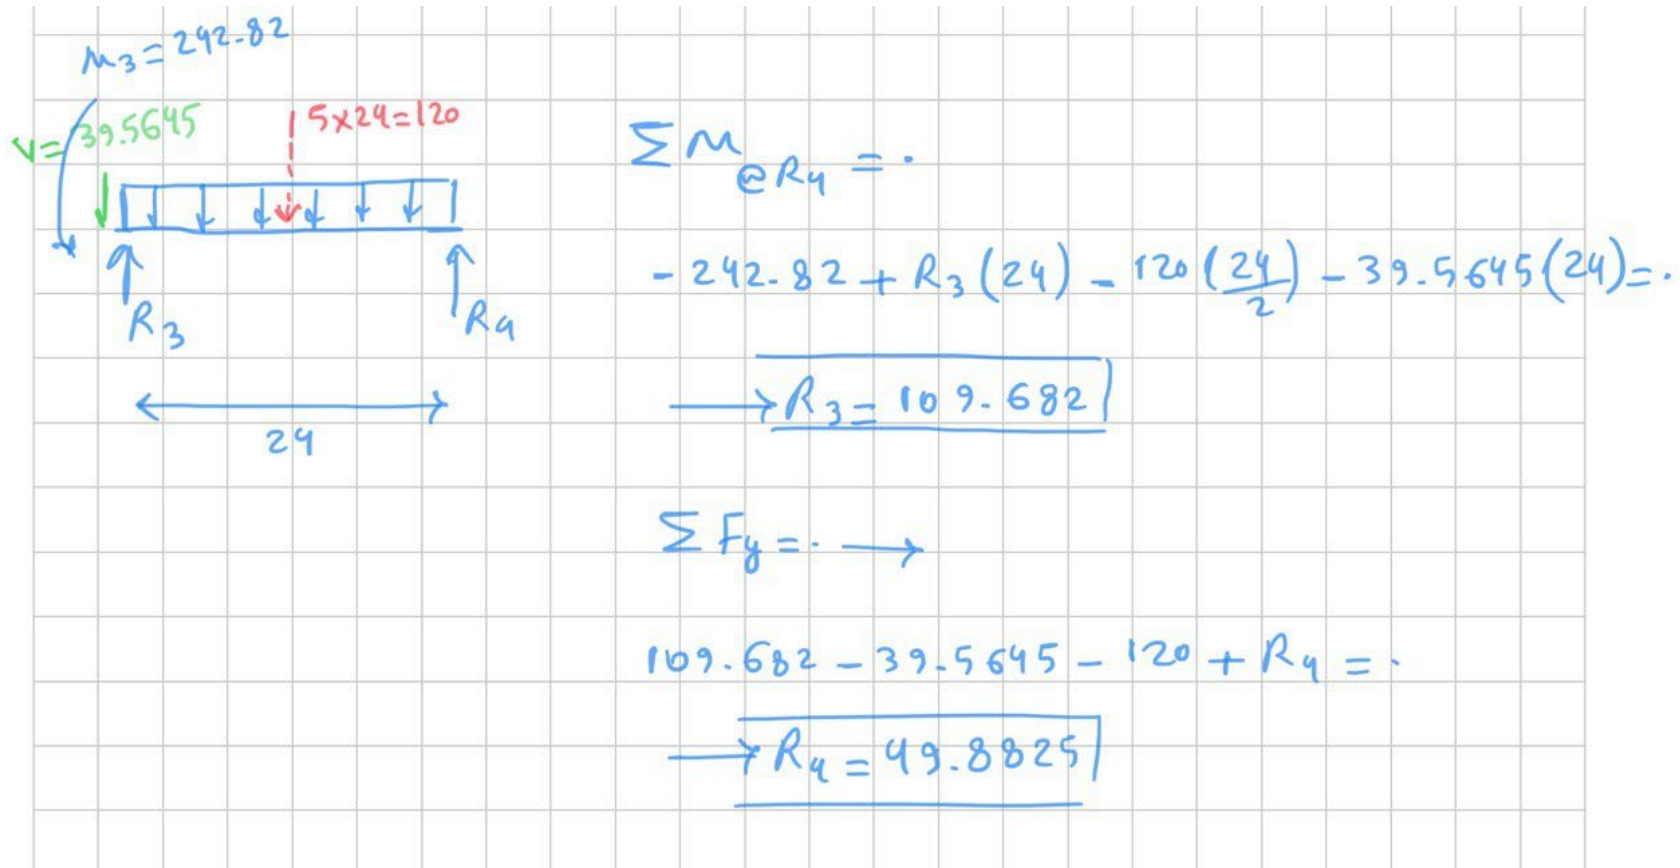 M3 = 242.82
V = 39.5645
5x24=120
R3
R4
24
ΣM@R4 = ·
- 242.82 + R3(24) - 120(24/2) - 39.5645(24) = ·
→ R3 = 109.682
ΣFy = · →
109.682 - 39.5645 - 120 + R4 = ·
→ R4 = 49.8825